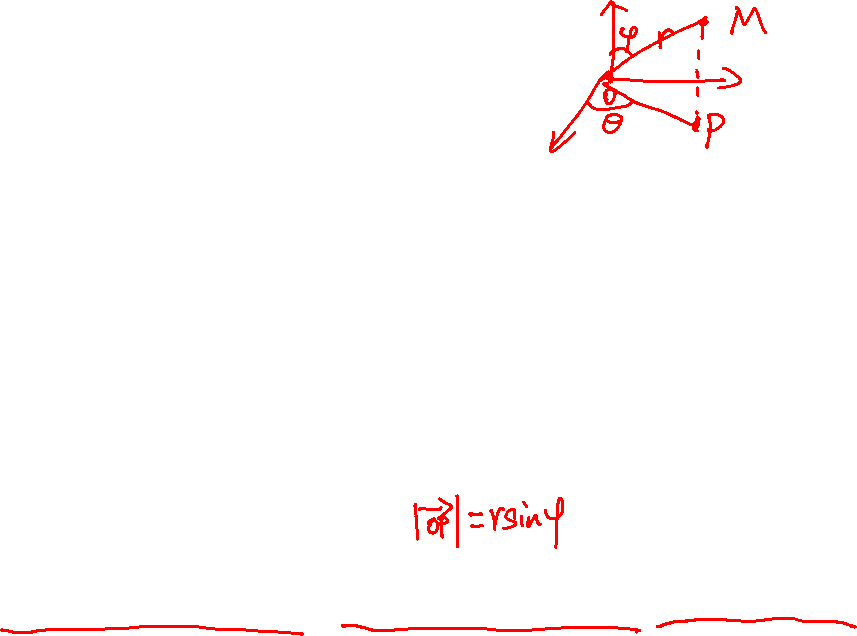 φ r M
O
θ P
|\overrightarrow{OP}| = r sin φ